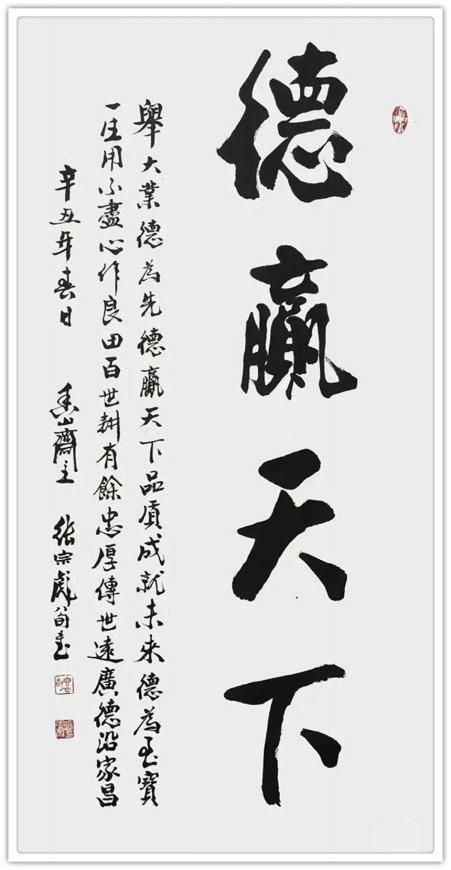 德贏天下
舉大業德為先德贏天下品质成就未来德為至寶
一生用不盡心作良田百世耕有餘忠厚傳世遠廣德治家昌
辛丑年春日 山齋主 張宗彪